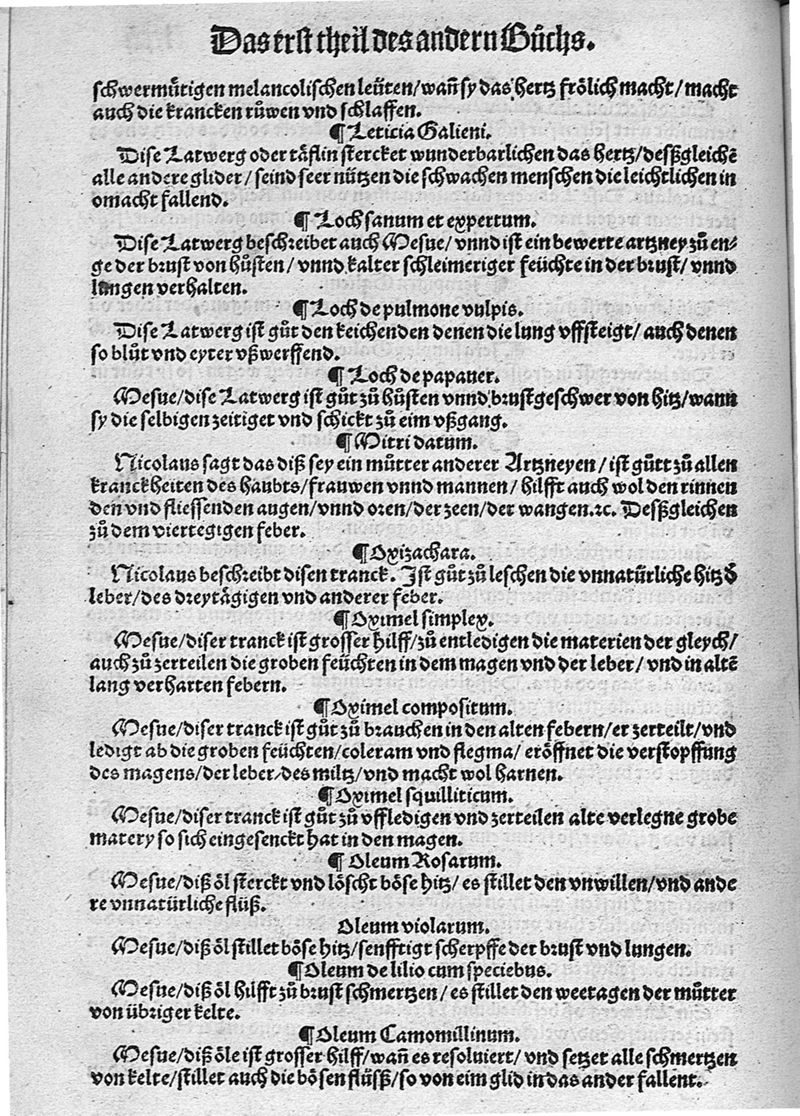 Das erst theil des andern Bůchs.
schwermůtigen melancolischen leüten/wañ sy das hertz frölich macht/macht
auch die krancken růwen vnd schlaffen.
¶ Leticia Galieni.
Dise Latwerg oder täflin stercket wunderbarlichen das hertz/deſßgleichẽ
alle andere glider/seind seer nützen die schwachen menschen die leichtlichen in
omacht fallend.
¶ Loch sanum et expertum.
Dise Latwerg beschreibet auch Mesue/vnnd ist ein bewerte artzney zů en-
ge der brust von hůsten/vnnd kalter schleimeriger feüchte in der brust/vnnd
lungen verhalten.
¶ Loch de pulmone vulpis.
Dise Latwerg ist gůt den keichenden denen die lung vffsteigt/auch denen
so blůt vnd eyter vßwerffend.
¶ Loch de papauer.
Mesue/dise Latwerg ist gůt zů hůsten vnnd brustgeschwer von hitz/wann
sy die selbigen zeitiget vnd schickt zů eim vßgang.
¶ Mitri datum.
Nicolaus sagt das diß sey ein můtter anderer Artzneyen/ist gůtt zů allen
kranckheiten des haubts/frauwen vnnd mannen/hilfft auch wol den rinnen
den vnd fliessenden augen/vnnd oren/der zeen/der wangen.⁊c. Deſßgleichen
zů dem viertegigen feber.
¶ Oxizachara.
Nicolaus beschreibt disen tranck. Ist gůt zů leschen die vnnatürliche hitz đ
leber/des dreytägigen vnd anderer feber.
¶ Oximel simplex.
Mesue/diser tranck ist grosser hilff/zů entledigen die materien der gleych/
auch zů zerteilen die groben feüchten in dem magen vnd der leber/vnd in altẽ
lang verharten febern.
¶ Oximel compositum.
Mesue/diser tranck ist gůt zů brauchen in den alten febern/er zerteilt/vnd
ledigt ab die groben feüchten/coleram vnd flegma/eröffnet die verstopffung
des magens/der leber/des miltz/vnd macht wol harnen.
¶ Oximel squilliticum.
Mesue/diser tranck ist gůt zů vffledigen vnd zerteilen alte verlegne grobe
matery so sich eingesenckt hat in den magen.
¶ Oleum Rosarum.
Mesue/diß öl sterckt vnd löscht böse hitz/es stillet den vnwillen/vnd ande
re vnnatürliche flüß.
Oleum violarum.
Mesue/diß öl stillet böse hitz/senfftigt scherpffe der brust vnd lungen.
¶ Oleum de lilio cum speciebus.
Mesue/diß öl hilfft zů brust schmertzen/es stillet den weetagen der můtter
von übriger kelte.
¶ Oleum Camomillinum.
Mesue/diß öle ist grosser hilff/wañ es resoluiert/vnd setzet alle schmertzen
von kelte/stillet auch die bösen flüsß/so von eim glid in das ander fallent.